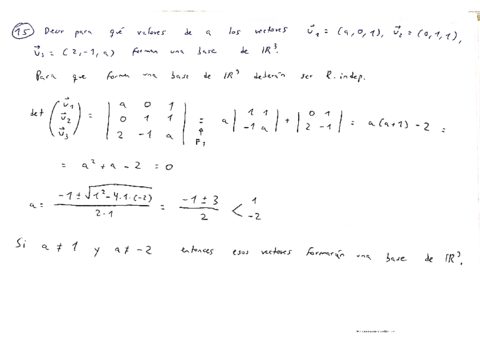 15 Decir para qué valores de a los vectores v⃗₁ = (a,0,1), v⃗₂ = (0,1,1),
v⃗₃ = (2,-1,a) forman una base de ℝ³.
Para que forman una base de ℝ³ deberán ser l. indep.
det (v⃗₁ v⃗₂ v⃗₃) = | a 0 1 ; 0 1 1 ; 2 -1 a | = (F₁) a | 1 1 ; -1 a | + | 0 1 ; 2 -1 | = a(a+1) - 2 =
= a² + a - 2 = 0
a = (-1 ± √(1² - 4·1·(-2))) / (2·1) = (-1 ± 3) / 2 < 1 ; -2
Si a ≠ 1 y a ≠ -2 entonces esos vectores formarán una base de ℝ³.